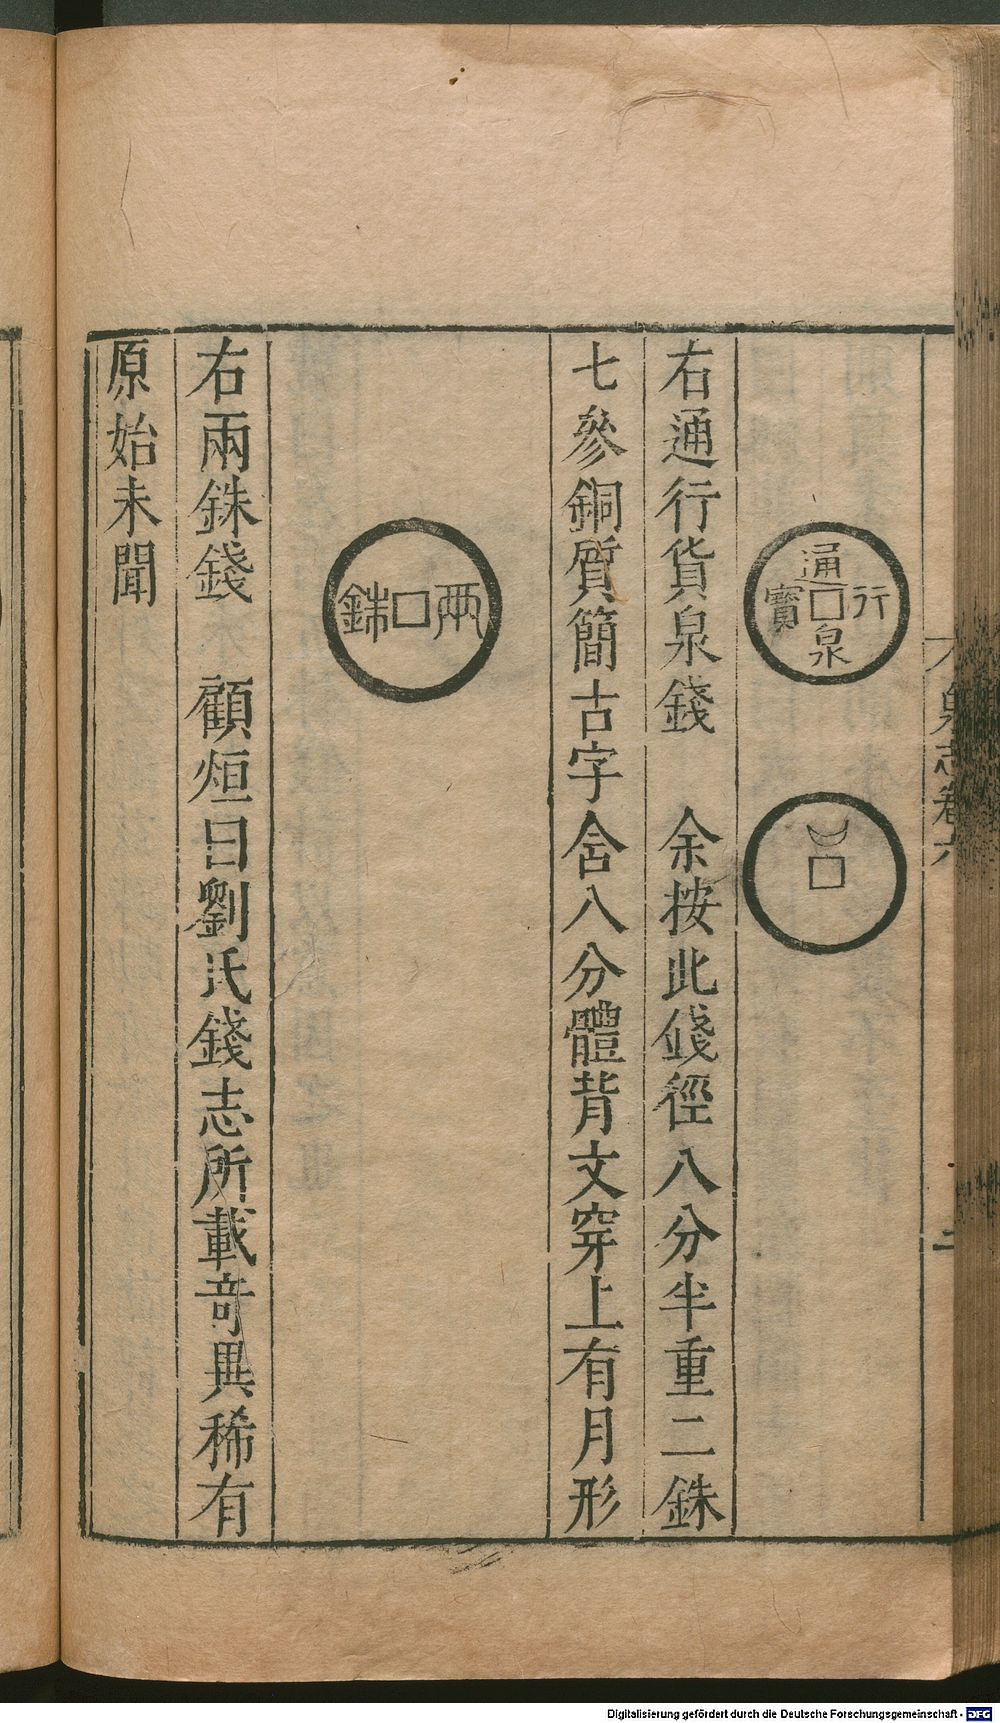 泉志卷六
通行泉寶
右通行貨泉錢　余按此錢徑八分半重二銖
七參銅質簡古字含八分體背文穿上有月形
兩銖
右兩銖錢　顧烜曰劉氏錢志所載竒異稀有
原始未聞
Digitalisierung gefördert durch die Deutsche Forschungsgemeinschaft - DFG